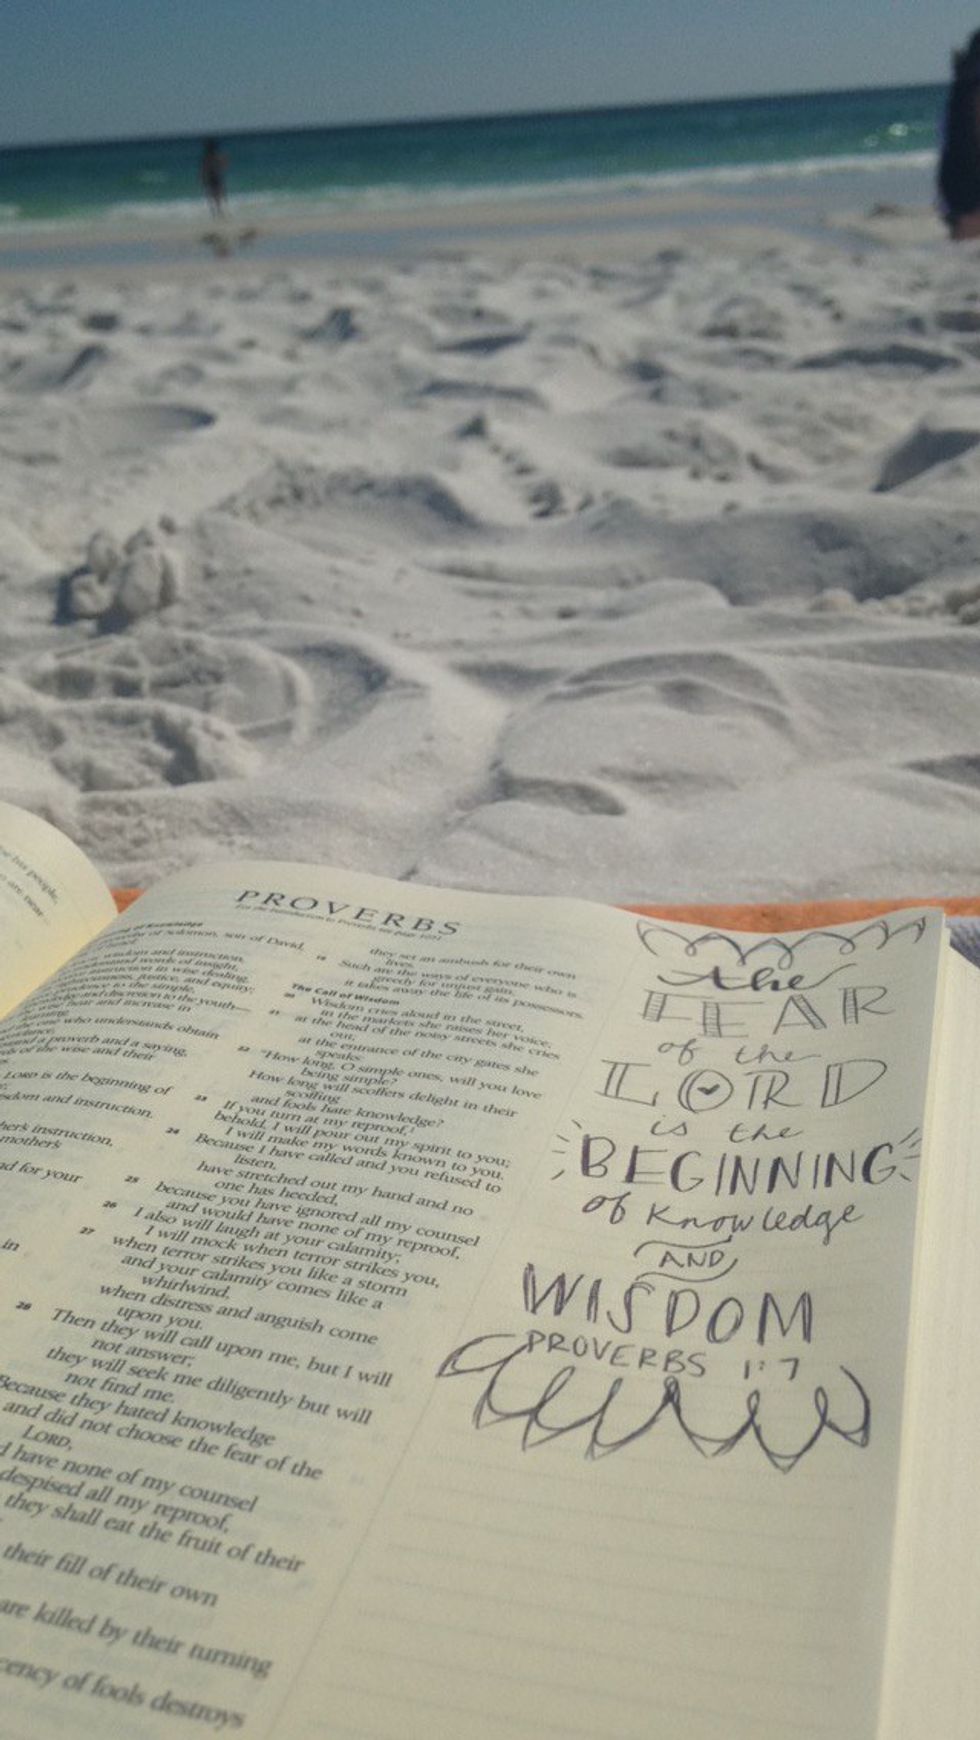 me his people,
are near
PROVERBS
of Knowledge
of Solomon, son of David,
wisdom and instruction,
understand words of insight,
instruction in wise dealing,
righteousness, justice, and equity;
prudence to the simple,
knowledge and discretion to the youth—
wise hear and increase in
learning,
the one who understands obtain
guidance,
understand a proverb and a saying,
words of the wise and their
LORD is the beginning of
wisdom and instruction.
instruction,
mother's
and for your
in
they set an ambush for their own
lives.
19 Such are the ways of everyone who is
greedy for unjust gain;
it takes away the life of its possessors.
The Call of Wisdom
20 Wisdom cries aloud in the street,
in the markets she raises her voice;
21 at the head of the noisy streets she cries
out;
at the entrance of the city gates she
speaks:
22 "How long, O simple ones, will you love
being simple?
How long will scoffers delight in their
scoffing
and fools hate knowledge?
23 If you turn at my reproof,
behold, I will pour out my spirit to you;
I will make my words known to you.
24 Because I have called and you refused to
listen,
have stretched out my hand and no
one has heeded,
25 because you have ignored all my counsel
and would have none of my reproof,
26 I also will laugh at your calamity;
I will mock when terror strikes you,
27 when terror strikes you like a storm
and your calamity comes like a
whirlwind,
when distress and anguish come
upon you.
28 Then they will call upon me, but I will
not answer;
they will seek me diligently but will
not find me.
Because they hated knowledge
and did not choose the fear of the
LORD,
have none of my counsel
despised all my reproof,
they shall eat the fruit of their
their fill of their own
are killed by their turning
of fools destroys
the
FEAR
of the
LORD
is the
BEGINNING
of Knowledge
AND
WISDOM
PROVERBS 1:7